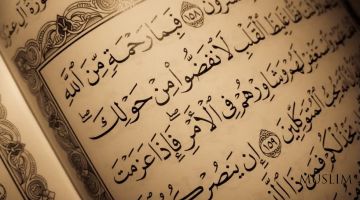 فَبِمَا رَحْمَةٍ مِّنَ ٱللَّهِ
غَلِيظَ ٱلْقَلْبِ لَٱنفَضُّوا۟ مِنْ حَوْلِكَ ۖ
لَهُمْ وَشَاوِرْهُمْ فِى ٱلْأَمْرِ ۖ فَإِذَا عَزَمْتَ
ٱلْمُتَوَكِّلِينَ ١٥٩ إِن
فَمَن ذَا ٱلَّذِى
MUSLIM